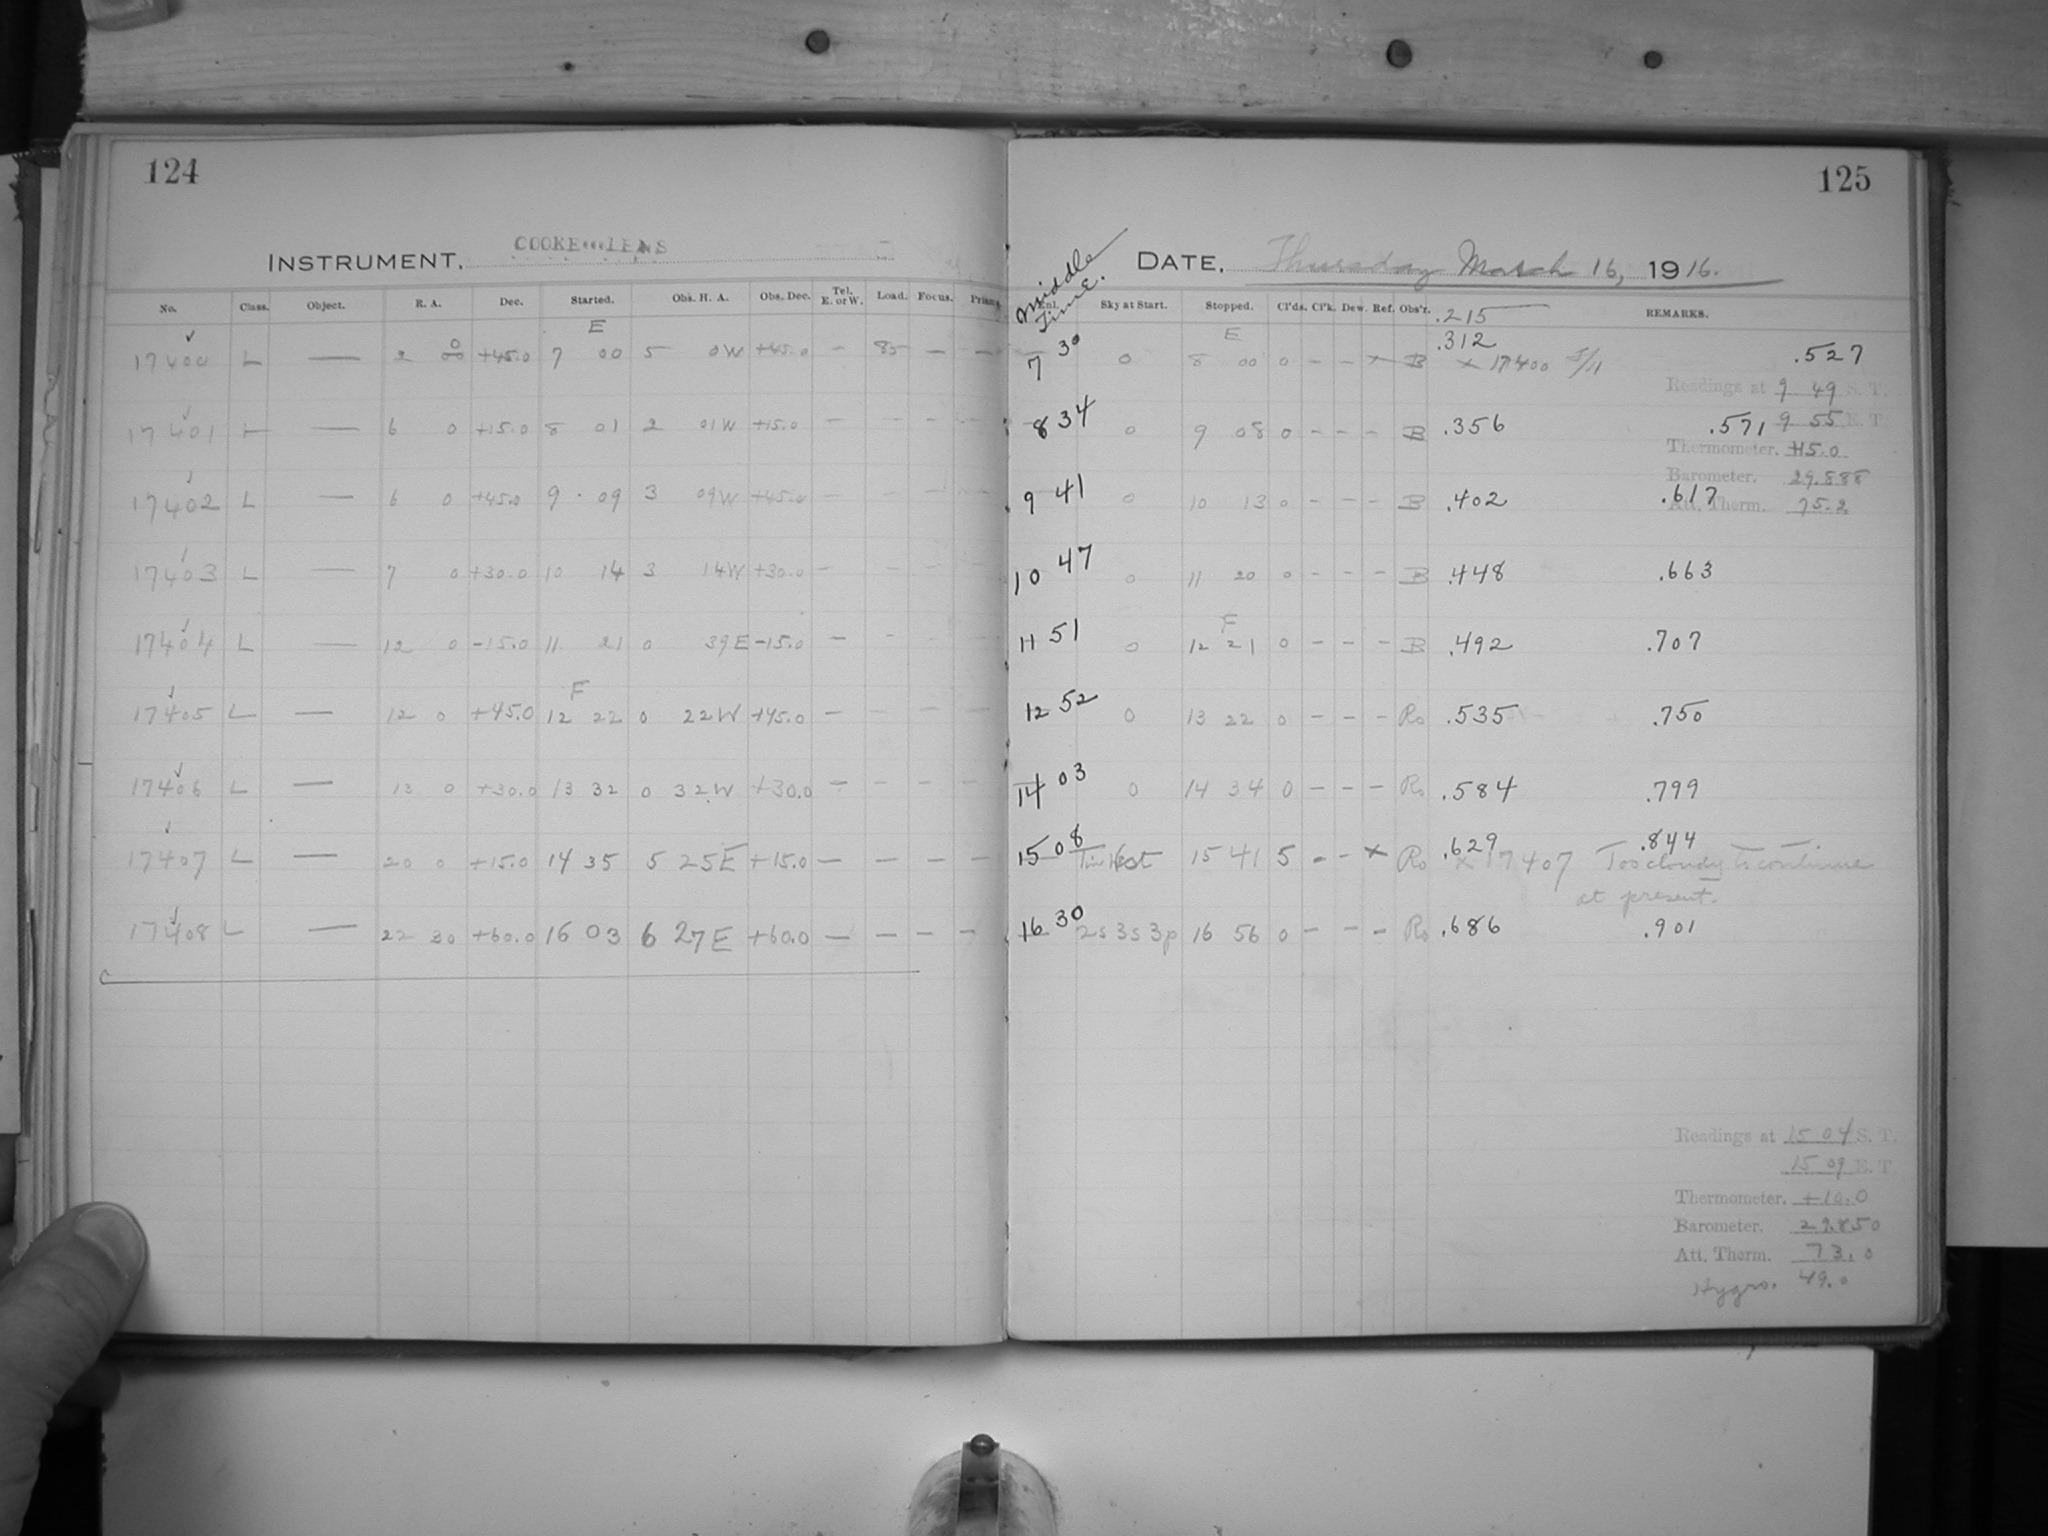 124
INSTRUMENT. COOKE LENS
No. Class. Object. R. A. Dec. Started. Obs. H. A. Obs. Dec. Tel. E. or W. Load. Focus. Prisms.
E
17400 L — 2 00 +45.0 7 00 5 0W +45.0 – 85 – –
17401 L — 6 0 +15.0 8 01 2 01W +15.0 – – – –
17402 L — 6 0 +45.0 9 09 3 09W +45.0 – – – –
17403 L — 7 0 +30.0 10 14 3 14W +30.0 – – – –
17404 L — 12 0 -15.0 11 21 0 39E -15.0 – – – –
F
17405 L — 12 0 +45.0 12 22 0 22W +45.0 – – – –
17406 L — 13 0 +30.0 13 32 0 32W +30.0 – – – –
17407 L — 20 0 +15.0 14 35 5 25E +15.0 – – – –
17408 L — 22 30 +60.0 16 03 6 27E +60.0 – – – –
125
DATE. Thursday March 16, 1916.
Middle Time.
Sky at Start. Stopped. Cl'ds. Cl'k. Dew. Ref. Obs'r. REMARKS.
.215
E
7 30 0 8 00 0 – – x B .312 .527
x 17400 5/11
Readings at 9 49 S. T.
8 34 0 9 08 0 – – – B .356 .571 9 55 E. T.
Thermometer. +15.0
Barometer. 29.888
9 41 0 10 13 0 – – – B .402 .617
Att. Therm. 75.2
10 47 0 11 20 0 – – – B .448 .663
F
11 51 0 12 21 0 – – – B .492 .707
12 52 0 13 22 0 – – – Ro .535 .750
14 03 0 14 34 0 – – – Ro .584 .799
15 08 15 41 5 – – x Ro .629 .844
x 17407 Too cloudy to continue
at present.
16 30 2s 3s 3p 16 56 0 – – – Ro .686 .901
Readings at 15 04 S. T.
15 09 E. T.
Thermometer. +10.0
Barometer. 29.850
Att. Therm. 73.0
Hygro. 49.0